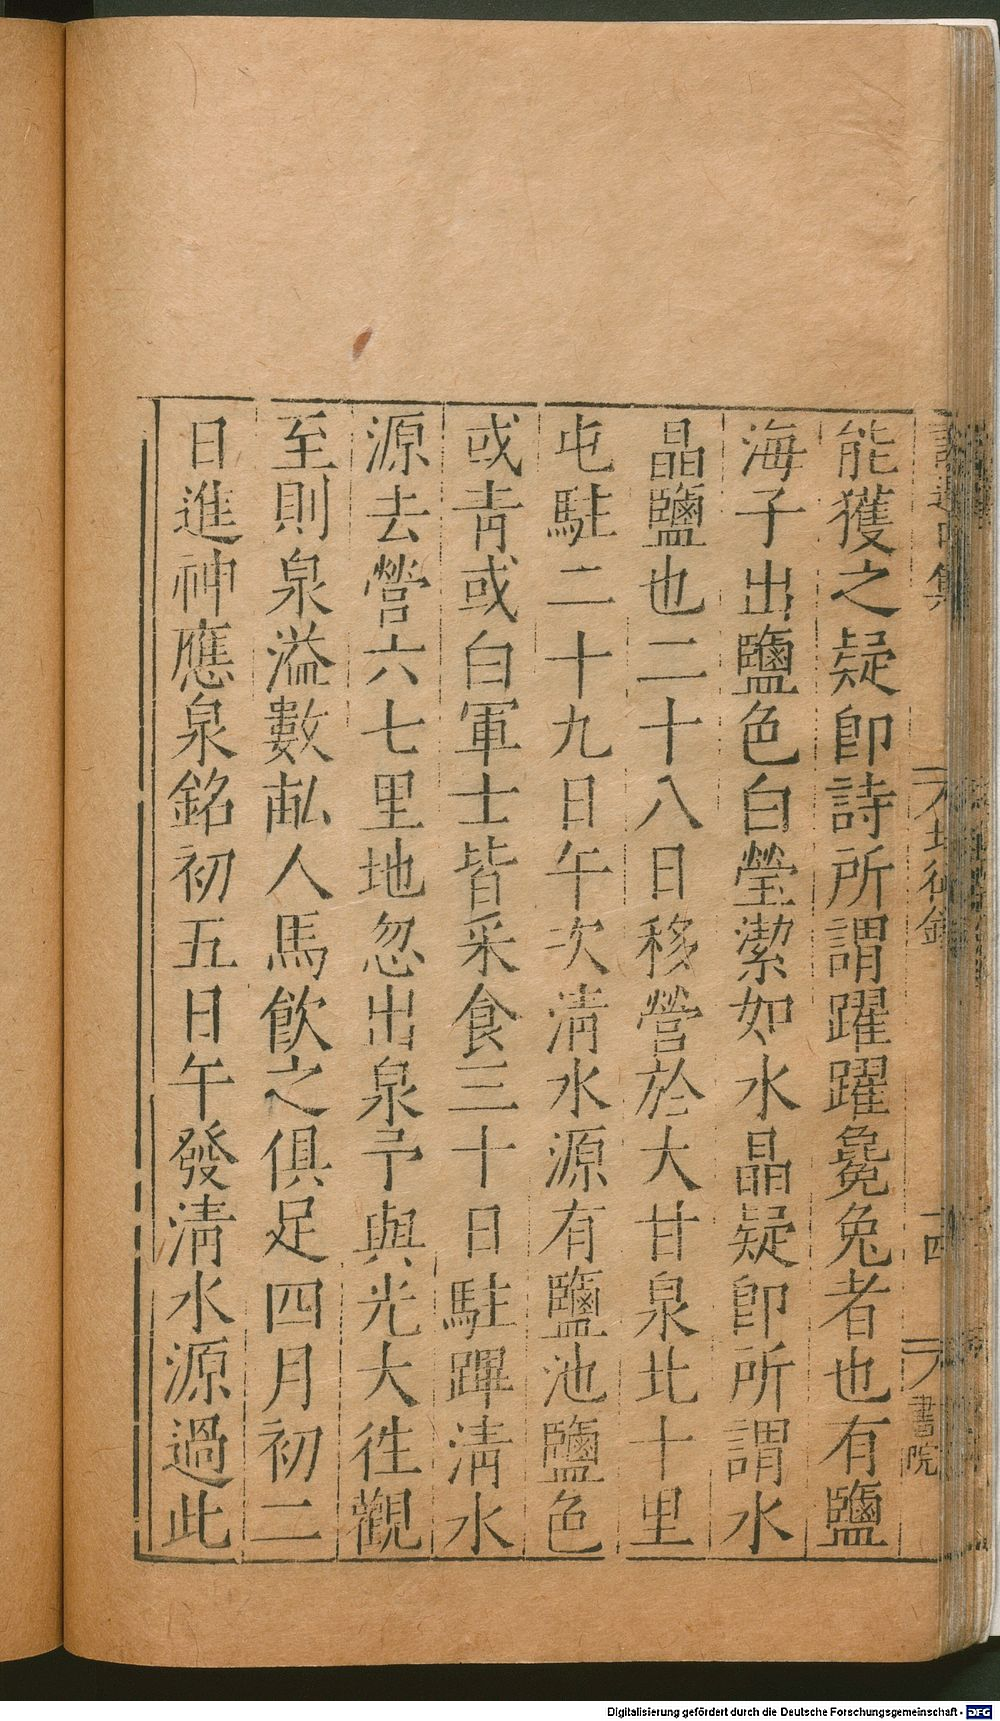 能獲之疑卽詩所謂躍躍毚兔者也有鹽
海子出鹽色白瑩潔如水晶疑卽所謂水
晶鹽也二十八日移營於大甘泉北十里
屯駐二十九日午次淸水源有鹽池鹽色
或靑或白軍士皆采食三十日駐蹕淸水
源去營六七里地忽出泉予與光大徃觀
至則泉溢數畝人馬飮之俱足四月初二
日進神應泉銘初五日午發淸水源過此
十四
書院
Digitalisierung gefördert durch die Deutsche Forschungsgemeinschaft - DFG